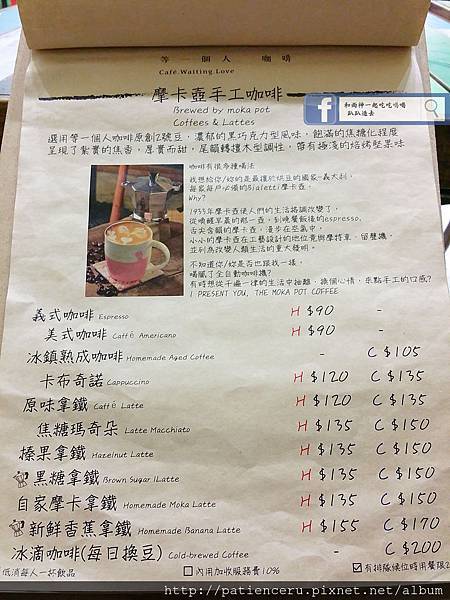 等 個 人 咖 啡
Café.Waiting.Love
摩卡壺手工咖啡
Brewed by moka pot
Coffees & Lattes
和雨神一起吃吃喝喝
趴趴造去
選用等一個人咖啡原創2號豆，濃郁的黑巧克力型風味，飽滿的焦糖化程度
呈現了紮實的焦香，厚實而甜，尾韻轉揸木型調性，帶有極淺的焙烤堅果味
咖啡有很多種喝法
我想給你/妳的是最獲於烘豆的國家-義大利，
每家每戶必備的Bialetti摩卡壺。
Why?
1933年摩卡壺使人們的生活格調改變了，
從喚醒早晨的那一壺，到晚餐飯後的espresso,
舌尖含韻的摩卡壺，漫步在空氣中，
小小的摩卡壺在工藝設計的地位竟與摩特車、留聲機，
並列為改變人類生活的重大發明。
不知道你/妳是否也跟我一樣，
喝膩了全自動咖啡機?
有時想從千遍一律的生活中抽離、換個心情，來點手工的口感?
I PRESENT YOU, THE MOKA POT COFFEE
義式咖啡 Espresso H $90 -
美式咖啡 Caffé Americano H $90 -
冰鎮熟成咖啡 Homemade Aged Coffee - C $105
卡布奇諾 Cappuccino H $120 C $135
原味拿鐵 Caffé Latte H $120 C $135
焦糖瑪奇朵 Latte Macchiato H $135 C $150
榛果拿鐵 Hazelnut Latte H $135 C $150
黑糖拿鐵 Brown Sugar lLatte H $135 C $150
自家摩卡拿鐵 Homemade Moka Latte H $135 C $150
新鮮香蕉拿鐵 Homemade Banana Latte H $155 C $170
冰滴咖啡(每日換豆) Cold-brewed Coffee - C $200
低消每人一杯飲品 內用加收服務費10% 有排隊候位時用餐限2
http://patienceru.pixnet.net/album